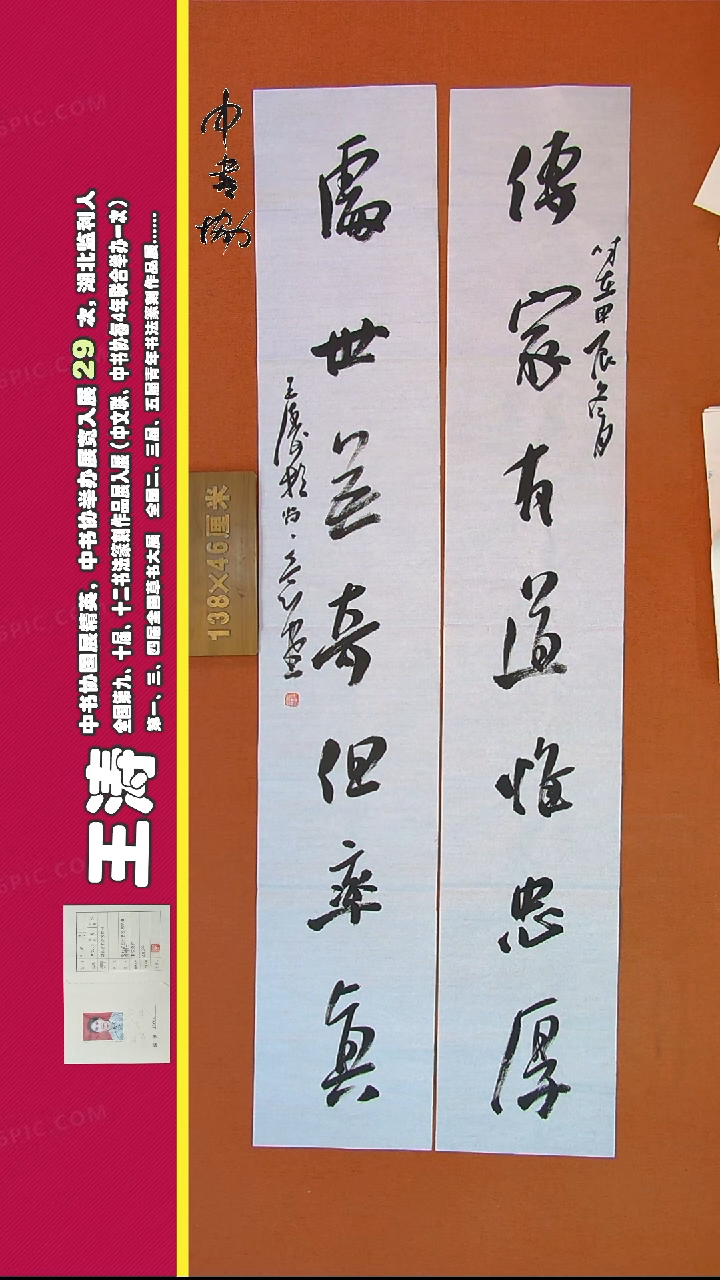 傳家有道惟忠厚
時在甲辰六月
處世無奇但率真
中書協
138×46厘米
王涛
中书协国展精英，中书协举办展览入展 29 次，湖北监利人
全国第九、十届、十二书法篆刻作品展入展（中文联、中书协每4年联合举办一次）
第一、三、四届全国草书大展 全国二、三届、五届青年书法篆刻作品展……